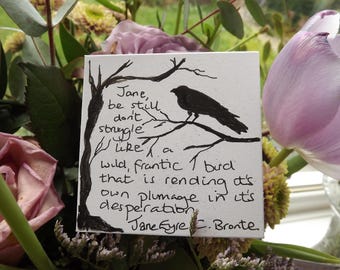 Jane,
be still
don't
struggle
like a
wild, frantic bird
that is rending its
own plumage in it's
desperation
Jane Eyre C. Bronte.